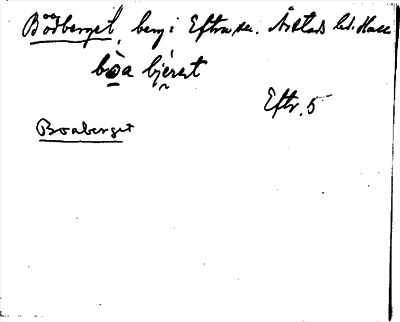 Böåberget, berg i Eftra sn. Årstads hd. Hall.
bo̲a bjɛrɛt
Eftr. 5
Boaberget